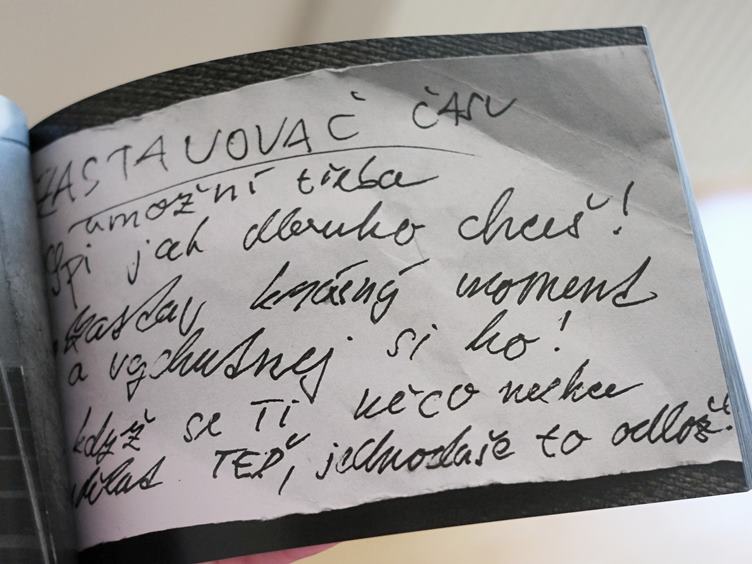 ZASTAVOVAČ ČASU
umožní třeba
Spi jak dlouho chceš!
zastav krásný moment
a vychutnej si ho!
když se Ti něco nechce
dělat TEĎ, jednoduše to odlož!